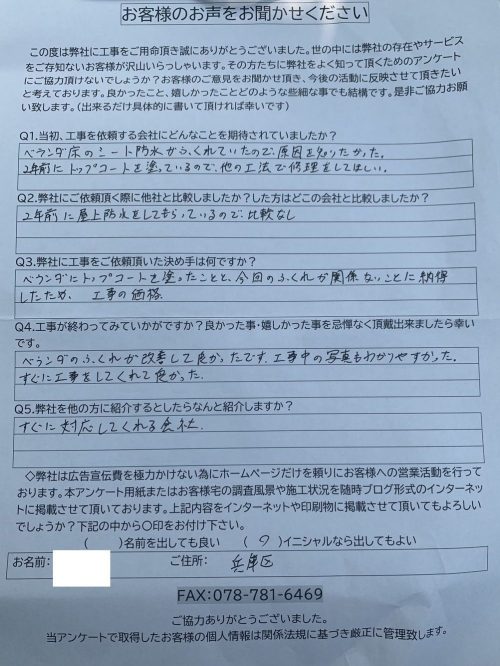 お客様のお声をお聞かせください
この度は弊社に工事をご用命頂き誠にありがとうございました。世の中には弊社の存在やサービス
をご存知ないお客様が沢山いらっしゃいます。その方たちに弊社をよく知って頂くためのアンケート
にご協力頂けないでしょうか？お客様のご意見をお聞かせ頂き、今後の活動に反映させて頂きたい
と考えております。良かったこと、嬉しかったことどのような些細な事でも結構です。是非ご協力お願
い致します。(出来るだけ具体的に書いて頂ければ幸いです)
Q1.当初、工事を依頼する会社にどんなことを期待されていましたか？
ベランダ床のシート防水がふくれていたので、原因を知りたかった。
2年前にトップコートを塗っているので、他の工法で修理をしてほしい。
Q2.弊社にご依頼頂く際に他社と比較しましたか？した方はどこの会社と比較しましたか？
2年前に屋上防水をしてもらっているので比較なし
Q3.弊社に工事をご依頼頂いた決め手は何ですか？
ベランダにトップコートを塗ったことと、今回のふくれが関係ないことに納得
したため 工事の価格
Q4.工事が終わってみていかがですか？良かった事・嬉しかった事を忌憚なく頂戴出来ましたら幸い
です。
ベランダのふくれが改善して良かったです。工事中の写真もわかりやすかった。
すぐに工事をしてくれて良かった。
Q5.弊社を他の方に紹介するとしたらなんと紹介しますか？
すぐに対応してくれる会社
◇弊社は広告宣伝費を極力かけない為にホームページだけを頼りにお客様への営業活動を行って
おります。本アンケート用紙またはお客様宅の調査風景や施工状況を随時ブログ形式のインターネッ
トに掲載させて頂いております。上記内容をインターネットや印刷物に掲載させて頂いてもよろしい
でしょうか？下記の中から〇印をお付け下さい。
( )名前を出しても良い ( )イニシャルなら出してもよい
お名前: ご住所: 兵庫区
FAX:078-781-6469
ご協力ありがとうございました。
当アンケートで取得したお客様の個人情報は関係法規に基づき厳正に管理致します。